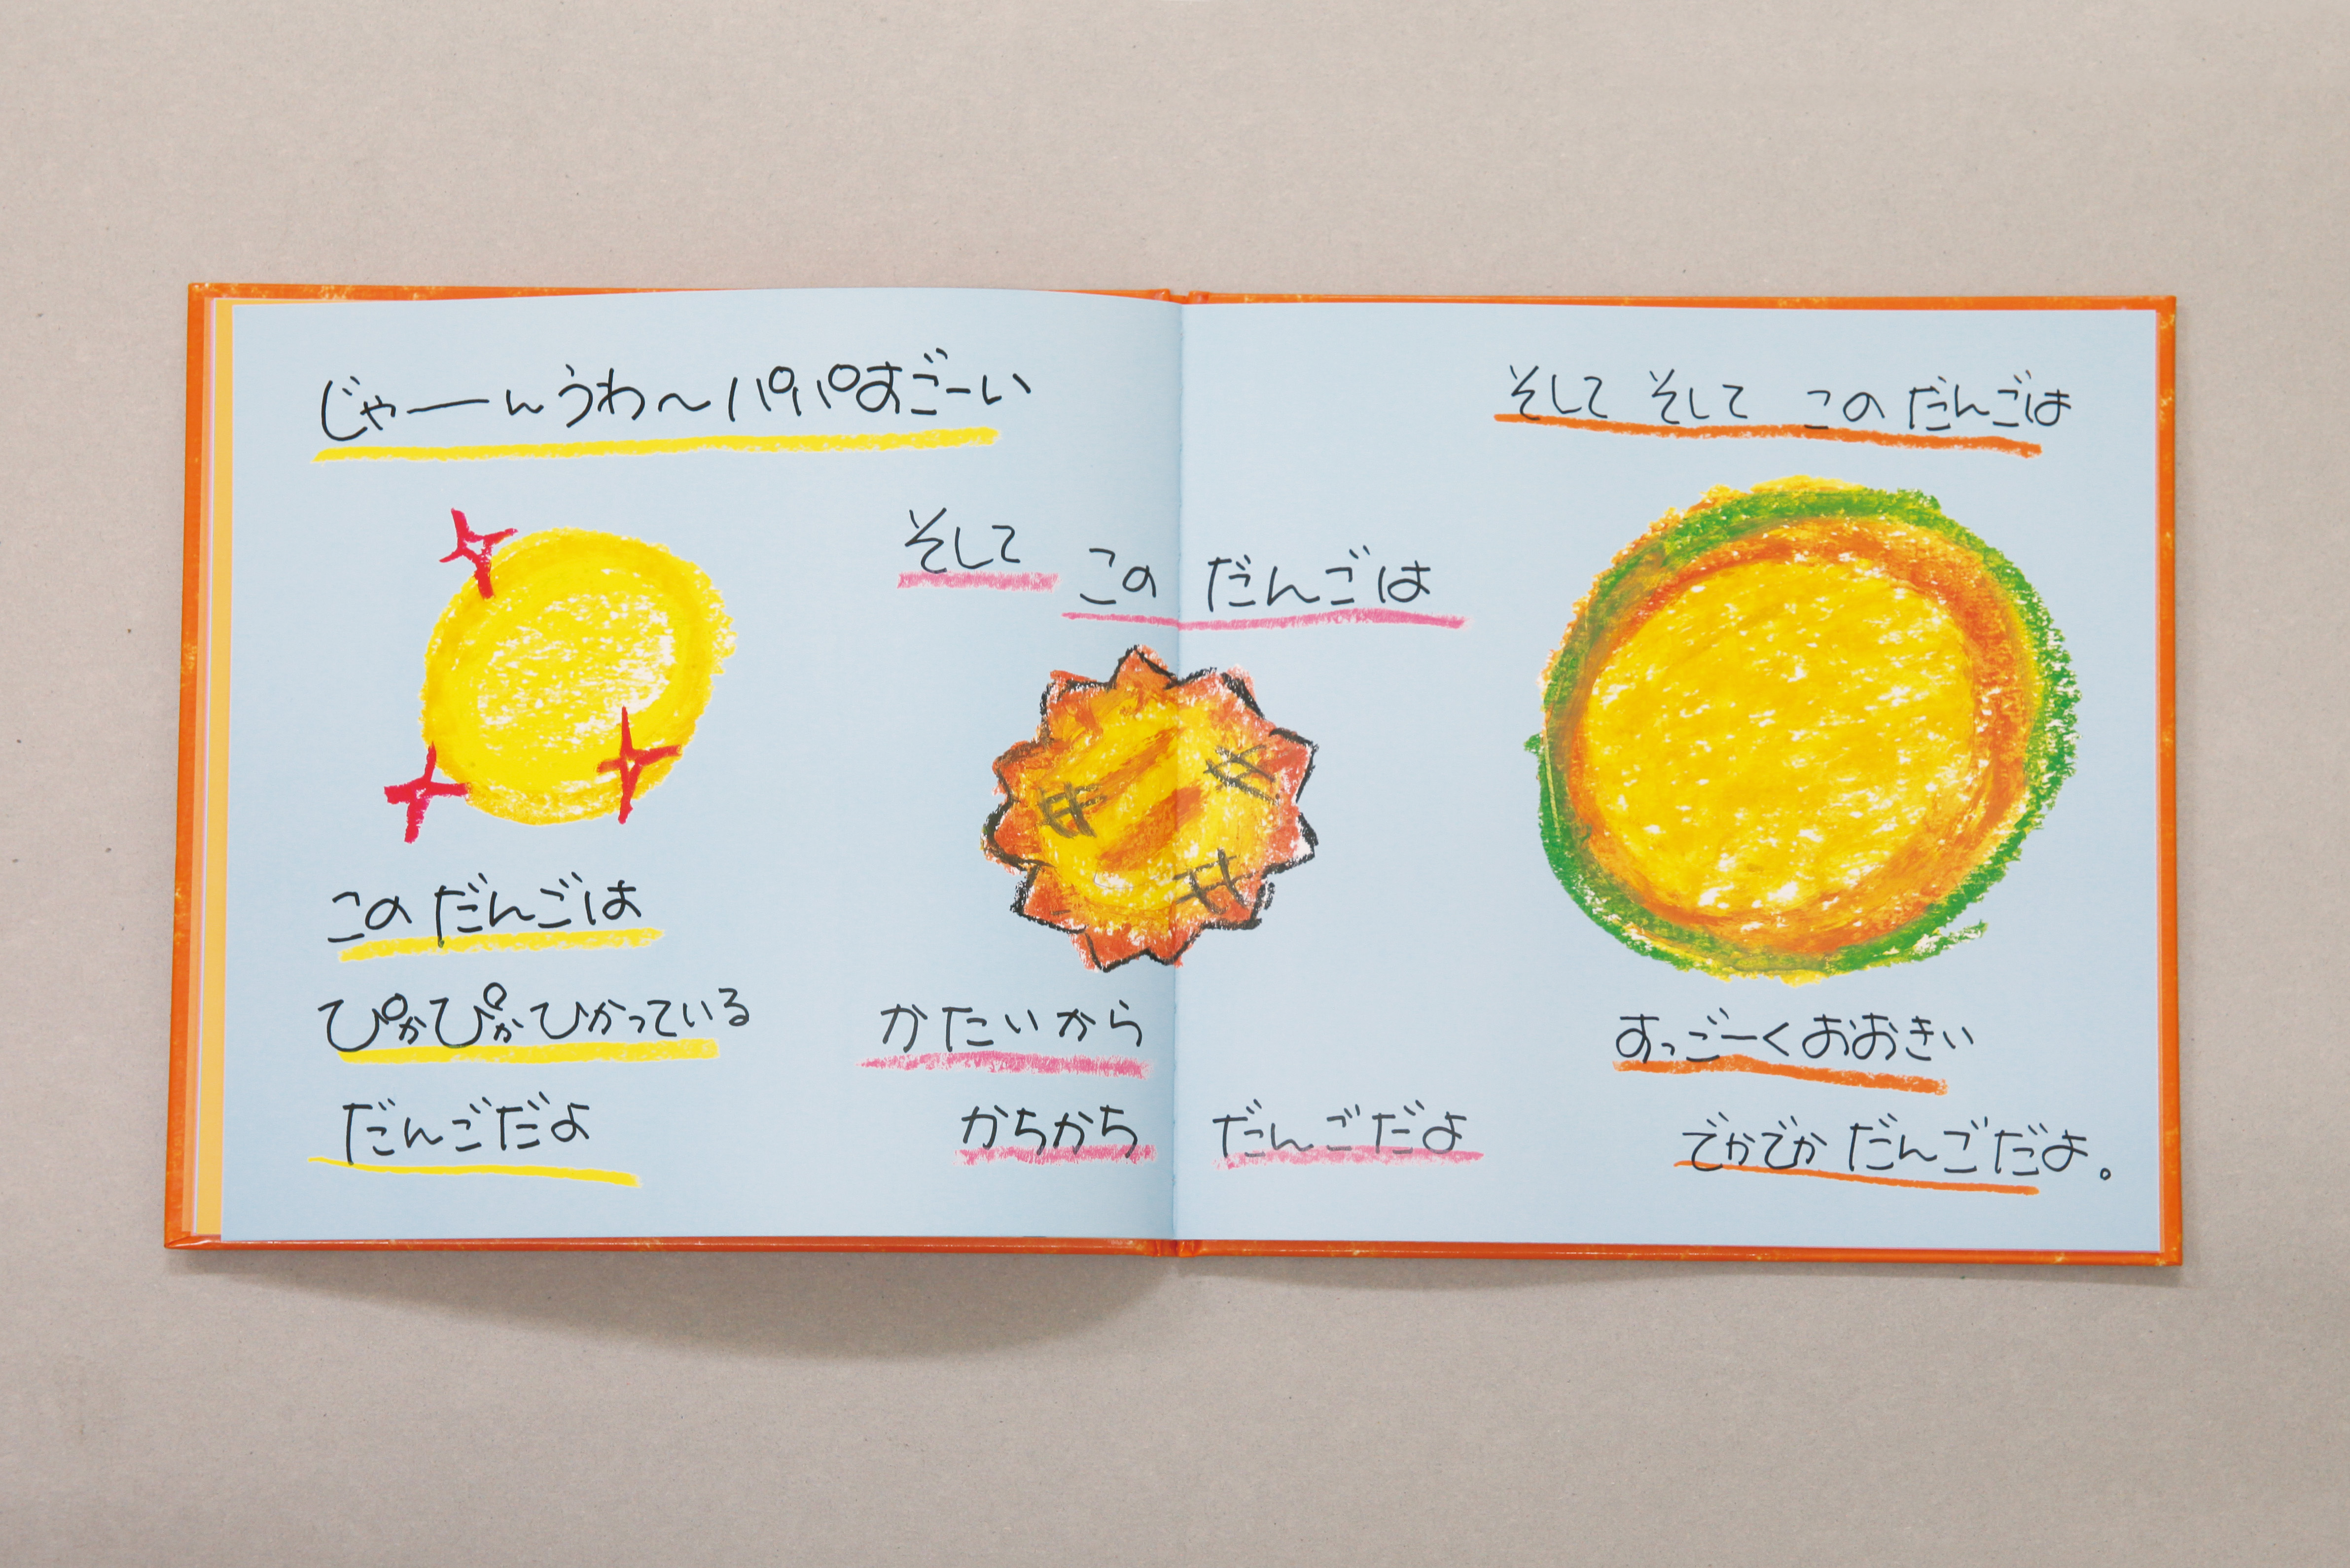 じゃーーんうわ〜パパすごーい
このだんごは
ぴかぴかひかっている
だんごだよ
そして
このだんごは
かたいから
かちかちだんごだよ
そして そして このだんごは
すっごーくおおきい
でかでかだんごだよ。